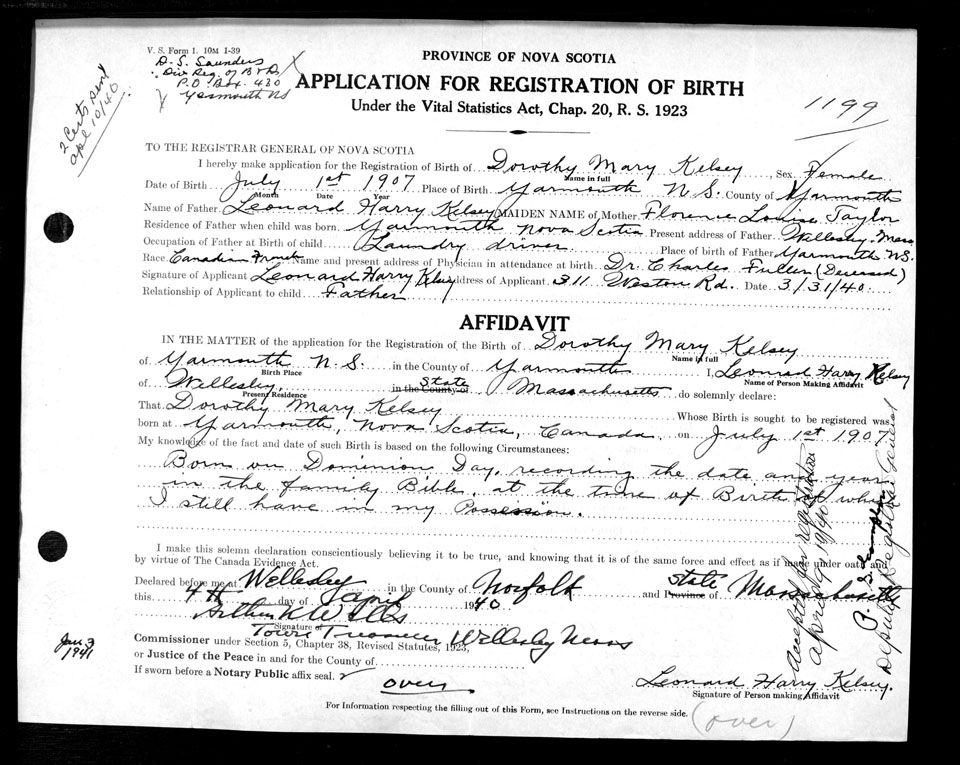 V. S. Form 1. 10M 1-39
D. S. Saunders
Div Reg. of B & D
P.O. Box. 430
Yarmouth NS
2 Certs sent
Apl 10/40
PROVINCE OF NOVA SCOTIA
APPLICATION FOR REGISTRATION OF BIRTH
Under the Vital Statistics Act, Chap. 20, R. S. 1923
1199
TO THE REGISTRAR GENERAL OF NOVA SCOTIA
I hereby make application for the Registration of Birth of Dorothy Mary Kelsey, Sex Female
Name in full
Date of Birth July 1st 1907 Place of Birth Yarmouth N.S. County of Yarmouth
Month Date Year
Name of Father Leonard Harry Kelsey MAIDEN NAME of Mother Florence Louise Taylor
Residence of Father when child was born Yarmouth Nova Scotia Present address of Father Wellesley Mass
Occupation of Father at Birth of child Laundry driver Place of birth of Father Yarmouth NS.
Race Canadian French Name and present address of Physician in attendance at birth Dr. Charles Fuller (Deceased)
Signature of Applicant Leonard Harry Kelsey Address of Applicant 311 Weston Rd. Date 3/31/40.
Relationship of Applicant to child Father
AFFIDAVIT
IN THE MATTER of the application for the Registration of the Birth of Dorothy Mary Kelsey
Name in full
of Yarmouth N.S. in the County of Yarmouth I, Leonard Harry Kelsey
Birth Place Name of Person Making Affidavit
of Wellesley. in the County of State Massachusetts do solemnly declare:
Present Residence
That Dorothy Mary Kelsey Whose Birth is sought to be registered was
born at Yarmouth, Nova Scotia, Canada, on July 1st 1907
My knowledge of the fact and date of such Birth is based on the following Circumstances:
Born on Dominion Day, recording the date and year
in the family Bible, at the time of Birth of which
I still have in my Possession.
I make this solemn declaration conscientiously believing it to be true, and knowing that it is of the same force and effect as if made under oath and
by virtue of The Canada Evidence Act.
Declared before me at Wellesley in the County of Norfolk and Province of State Massachusetts
this 4th day of April 1940
Signature of
Town Treasurer Wellesley Mass
Commissioner under Section 5, Chapter 38, Revised Statutes, 1923,
or Justice of the Peace in and for the County of
If sworn before a Notary Public affix seal.
over
Leonard Harry Kelsey.
Signature of Person making Affidavit
For Information respecting the filling out of this Form, see Instructions on the reverse side.
(over)
Jan. 3
1941
Accepted for registration
April 9 19/40
Deputy Registrar General